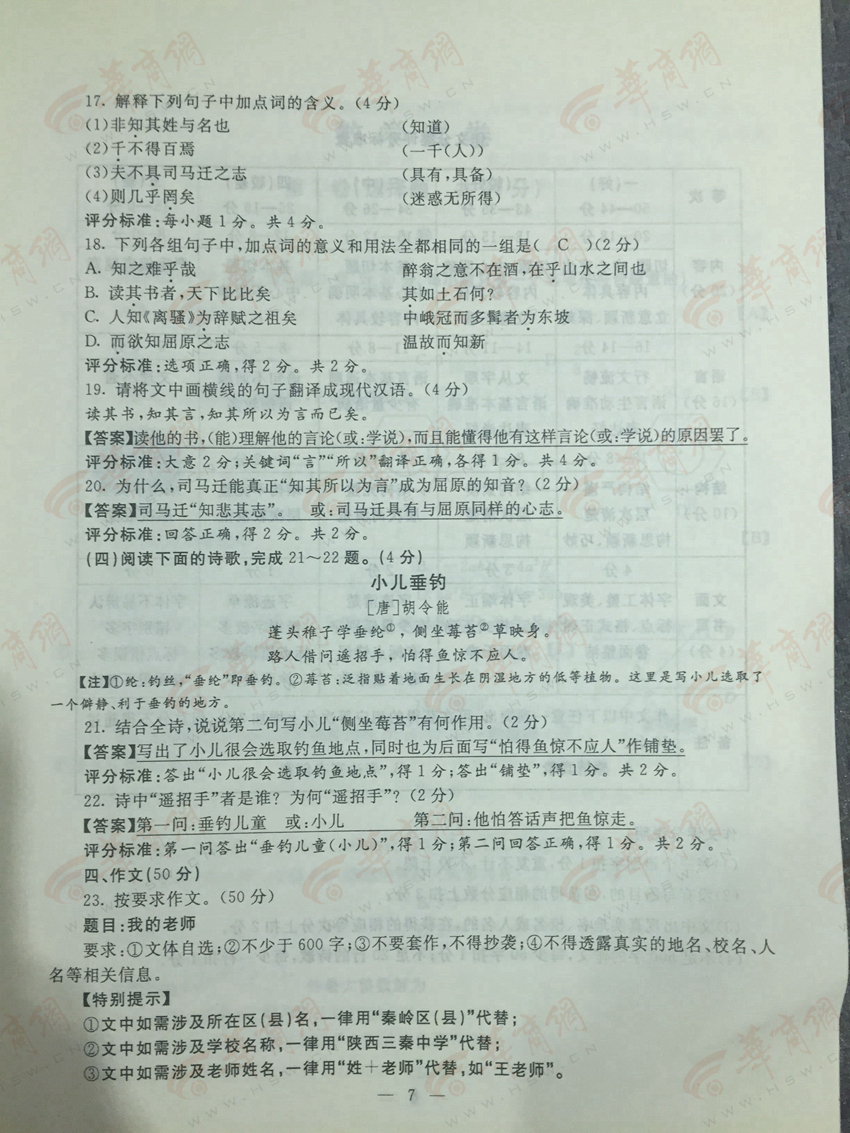 17. 解释下列句子中加点词的含义。(4分)
(1)非知其姓与名也 (知道)
(2)千不得百焉 (一千(人))
(3)夫不具司马迁之志 (具有,具备)
(4)则几乎罔矣 (迷惑无所得)
评分标准:每小题1分。共4分。
18. 下列各组句子中,加点词的意义和用法全都相同的一组是( C )(2分)
A. 知之难乎哉 醉翁之意不在酒,在乎山水之间也
B. 读其书者,天下比比矣 其如土石何?
C. 人知《离骚》为辞赋之祖矣 中峨冠而多髯者为东坡
D. 而欲知屈原之志 温故而知新
评分标准:选项正确,得2分。共2分。
19. 请将文中画横线的句子翻译成现代汉语。(4分)
读其书,知其言,知其所以为言而已矣。
【答案】读他的书,(能)理解他的言论(或:学说),而且能懂得他有这样言论(或:学说)的原因罢了。
评分标准:大意2分;关键词“言”“所以”翻译正确,各得1分。共4分。
20. 为什么,司马迁能真正“知其所以为言”成为屈原的知音?(2分)
【答案】司马迁“知悲其志”。 或:司马迁具有与屈原同样的心志。
评分标准:回答正确,得2分。共2分。
(四)阅读下面的诗歌,完成21～22题。(4分)
小儿垂钓
[唐]胡令能
蓬头稚子学垂纶①,侧坐莓苔②草映身。
路人借问遥招手,怕得鱼惊不应人。
【注】①纶:钓丝,“垂纶”即垂钓。②莓苔:泛指贴着地面生长在阴湿地方的低等植物。这里是写小儿选取了
一个僻静、利于垂钓的地方。
21. 结合全诗,说说第二句写小儿“侧坐莓苔”有何作用。(2分)
【答案】写出了小儿很会选取钓鱼地点,同时也为后面写“怕得鱼惊不应人”作铺垫。
评分标准:答出“小儿很会选取钓鱼地点”,得1分;答出“铺垫”,得1分。共2分。
22. 诗中“遥招手”者是谁?为何“遥招手”?(2分)
【答案】第一问:垂钓儿童 或:小儿 第二问:他怕答话声把鱼惊走。
评分标准:第一问答出“垂钓儿童(小儿)”,得1分;第二问回答正确,得1分。共2分。
四、作文(50分)
23. 按要求作文。(50分)
题目:我的老师
要求:①文体自选;②不少于600字;③不要套作,不得抄袭;④不得透露真实的地名、校名、人
名等相关信息。
【特别提示】
①文中如需涉及所在区(县)名,一律用“秦岭区(县)”代替;
②文中如需涉及学校名称,一律用“陕西三秦中学”代替;
③文中如需涉及老师姓名,一律用“姓＋老师”代替,如“王老师”。
— 7 —